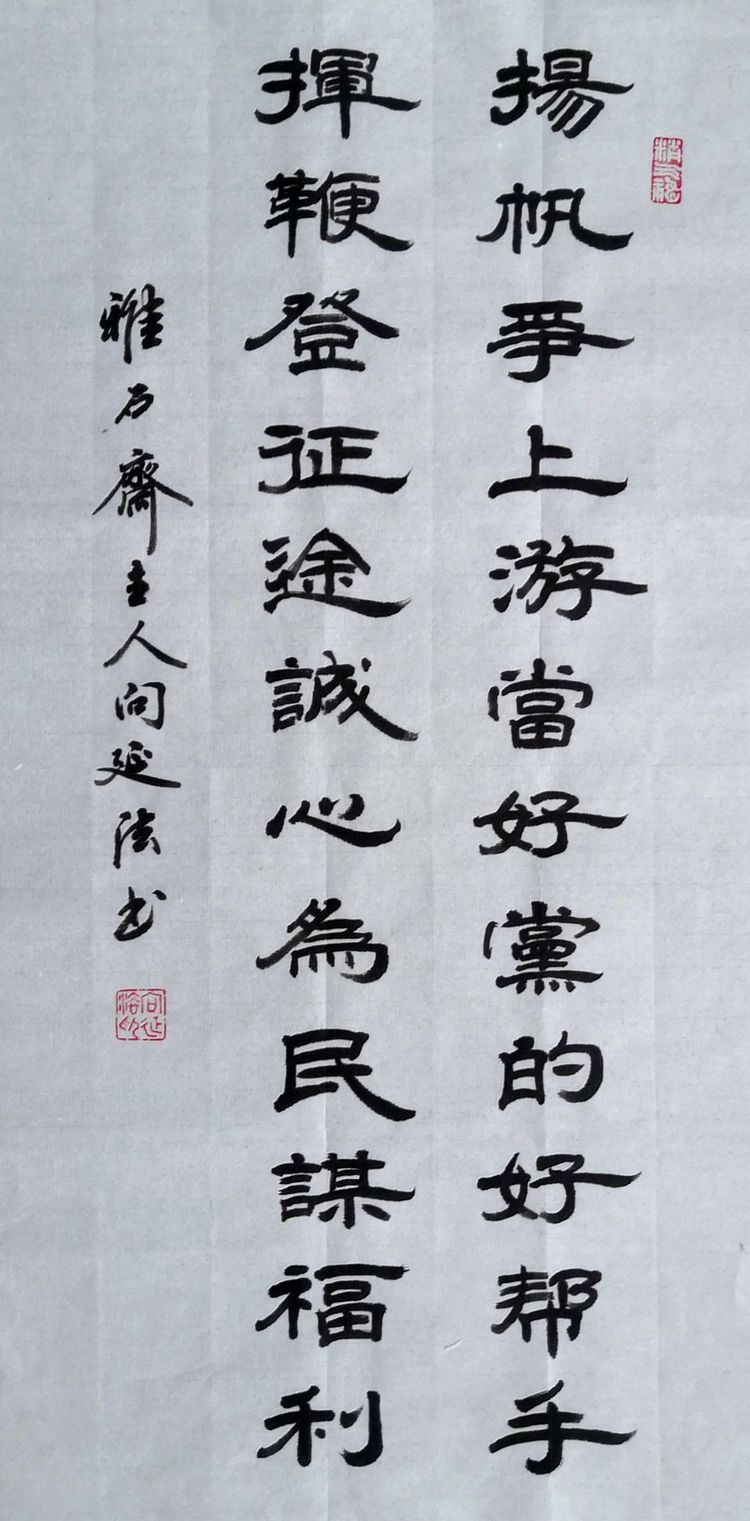 揚帆爭上游當好黨的好帮手
揮鞭登征途誠心為民謀福利
雅石齋主人向延法书